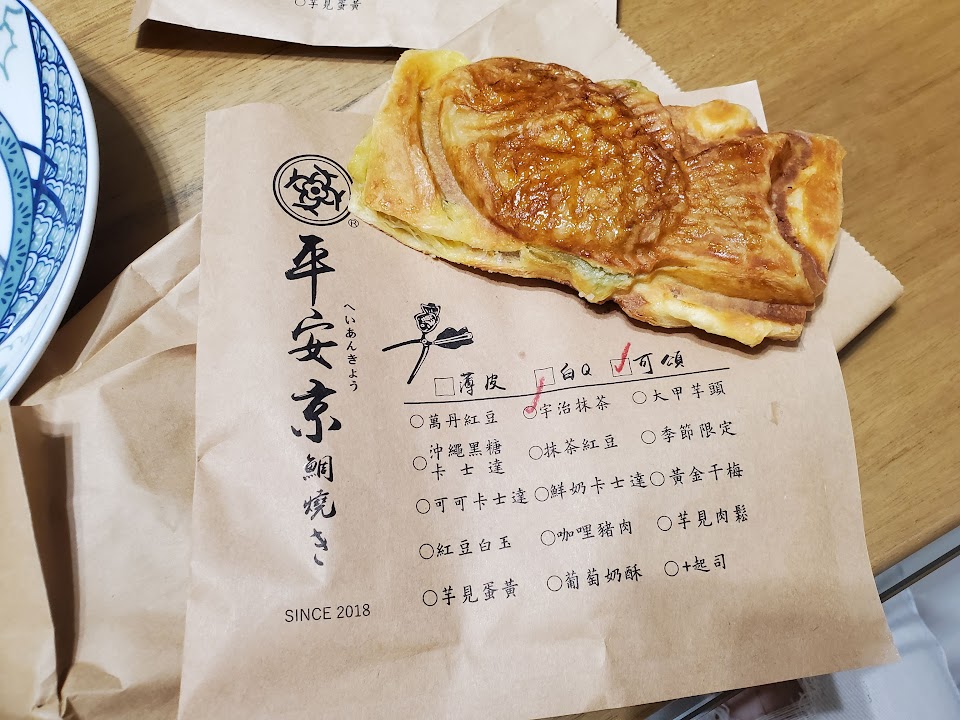 ○芋見蛋黃
®
平安京鯛燒き
へいあんきょう
□薄皮 □白Q ☑可頌
○萬丹紅豆 ○宇治抹茶 ○大甲芋頭
○沖繩黑糖卡士達 ○抹茶紅豆 ○季節限定
○可可卡士達 ○鮮奶卡士達 ○黃金干梅
○紅豆白玉 ○咖哩豬肉 ○芋見肉鬆
○芋見蛋黃 ○葡萄奶酥 ○+起司
SINCE 2018